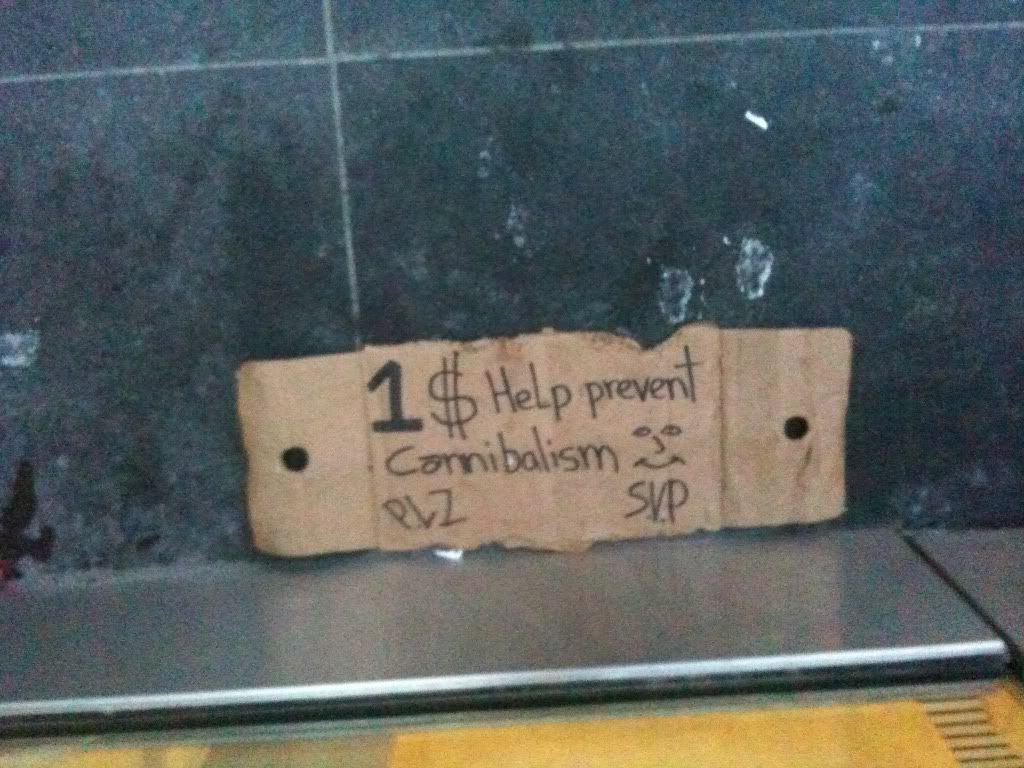 1$ Help prevent
Cannibalism
PLZ SVP